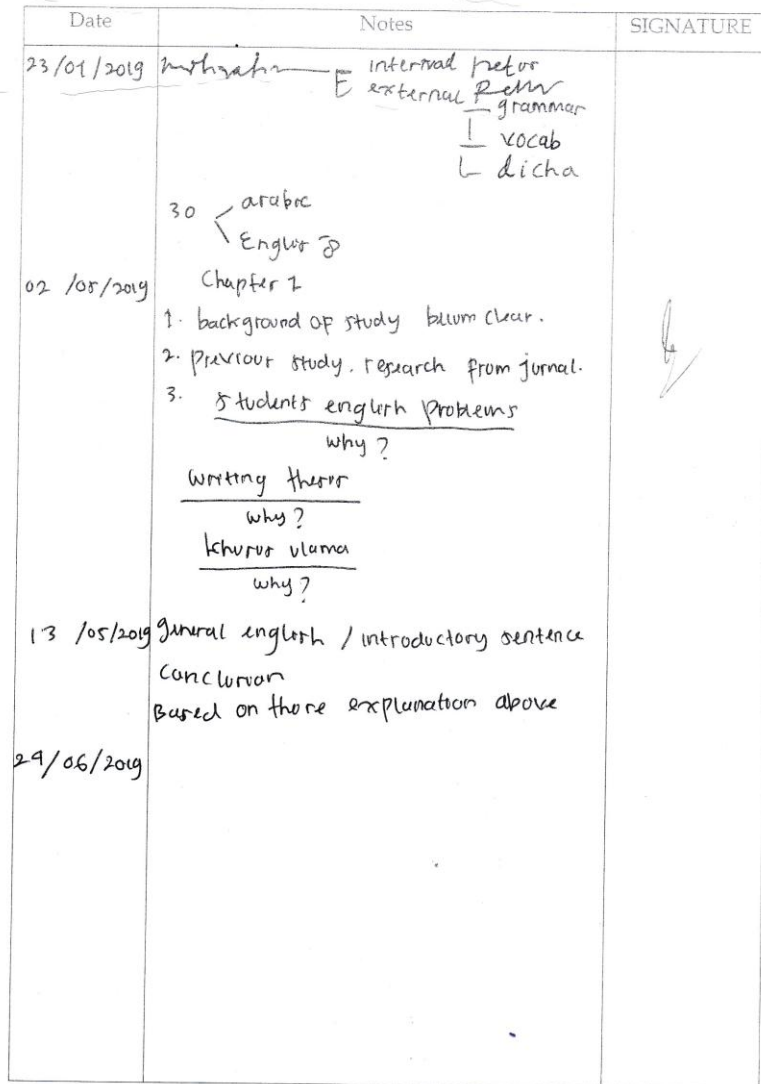 Date Notes SIGNATURE
23/01/2019 internal
external
grammar
vocab
dicha
30 arabic
English
02 /05/2019 Chapter 1
1. background of study bllum clear.
2. previous study. research from jurnal.
3. students english problems
why?
writing thesis
why?
khusus ulama
why?
13 /05/2019 general english / introductory sentence
Conclusion
Based on those explanation above
29/06/2019